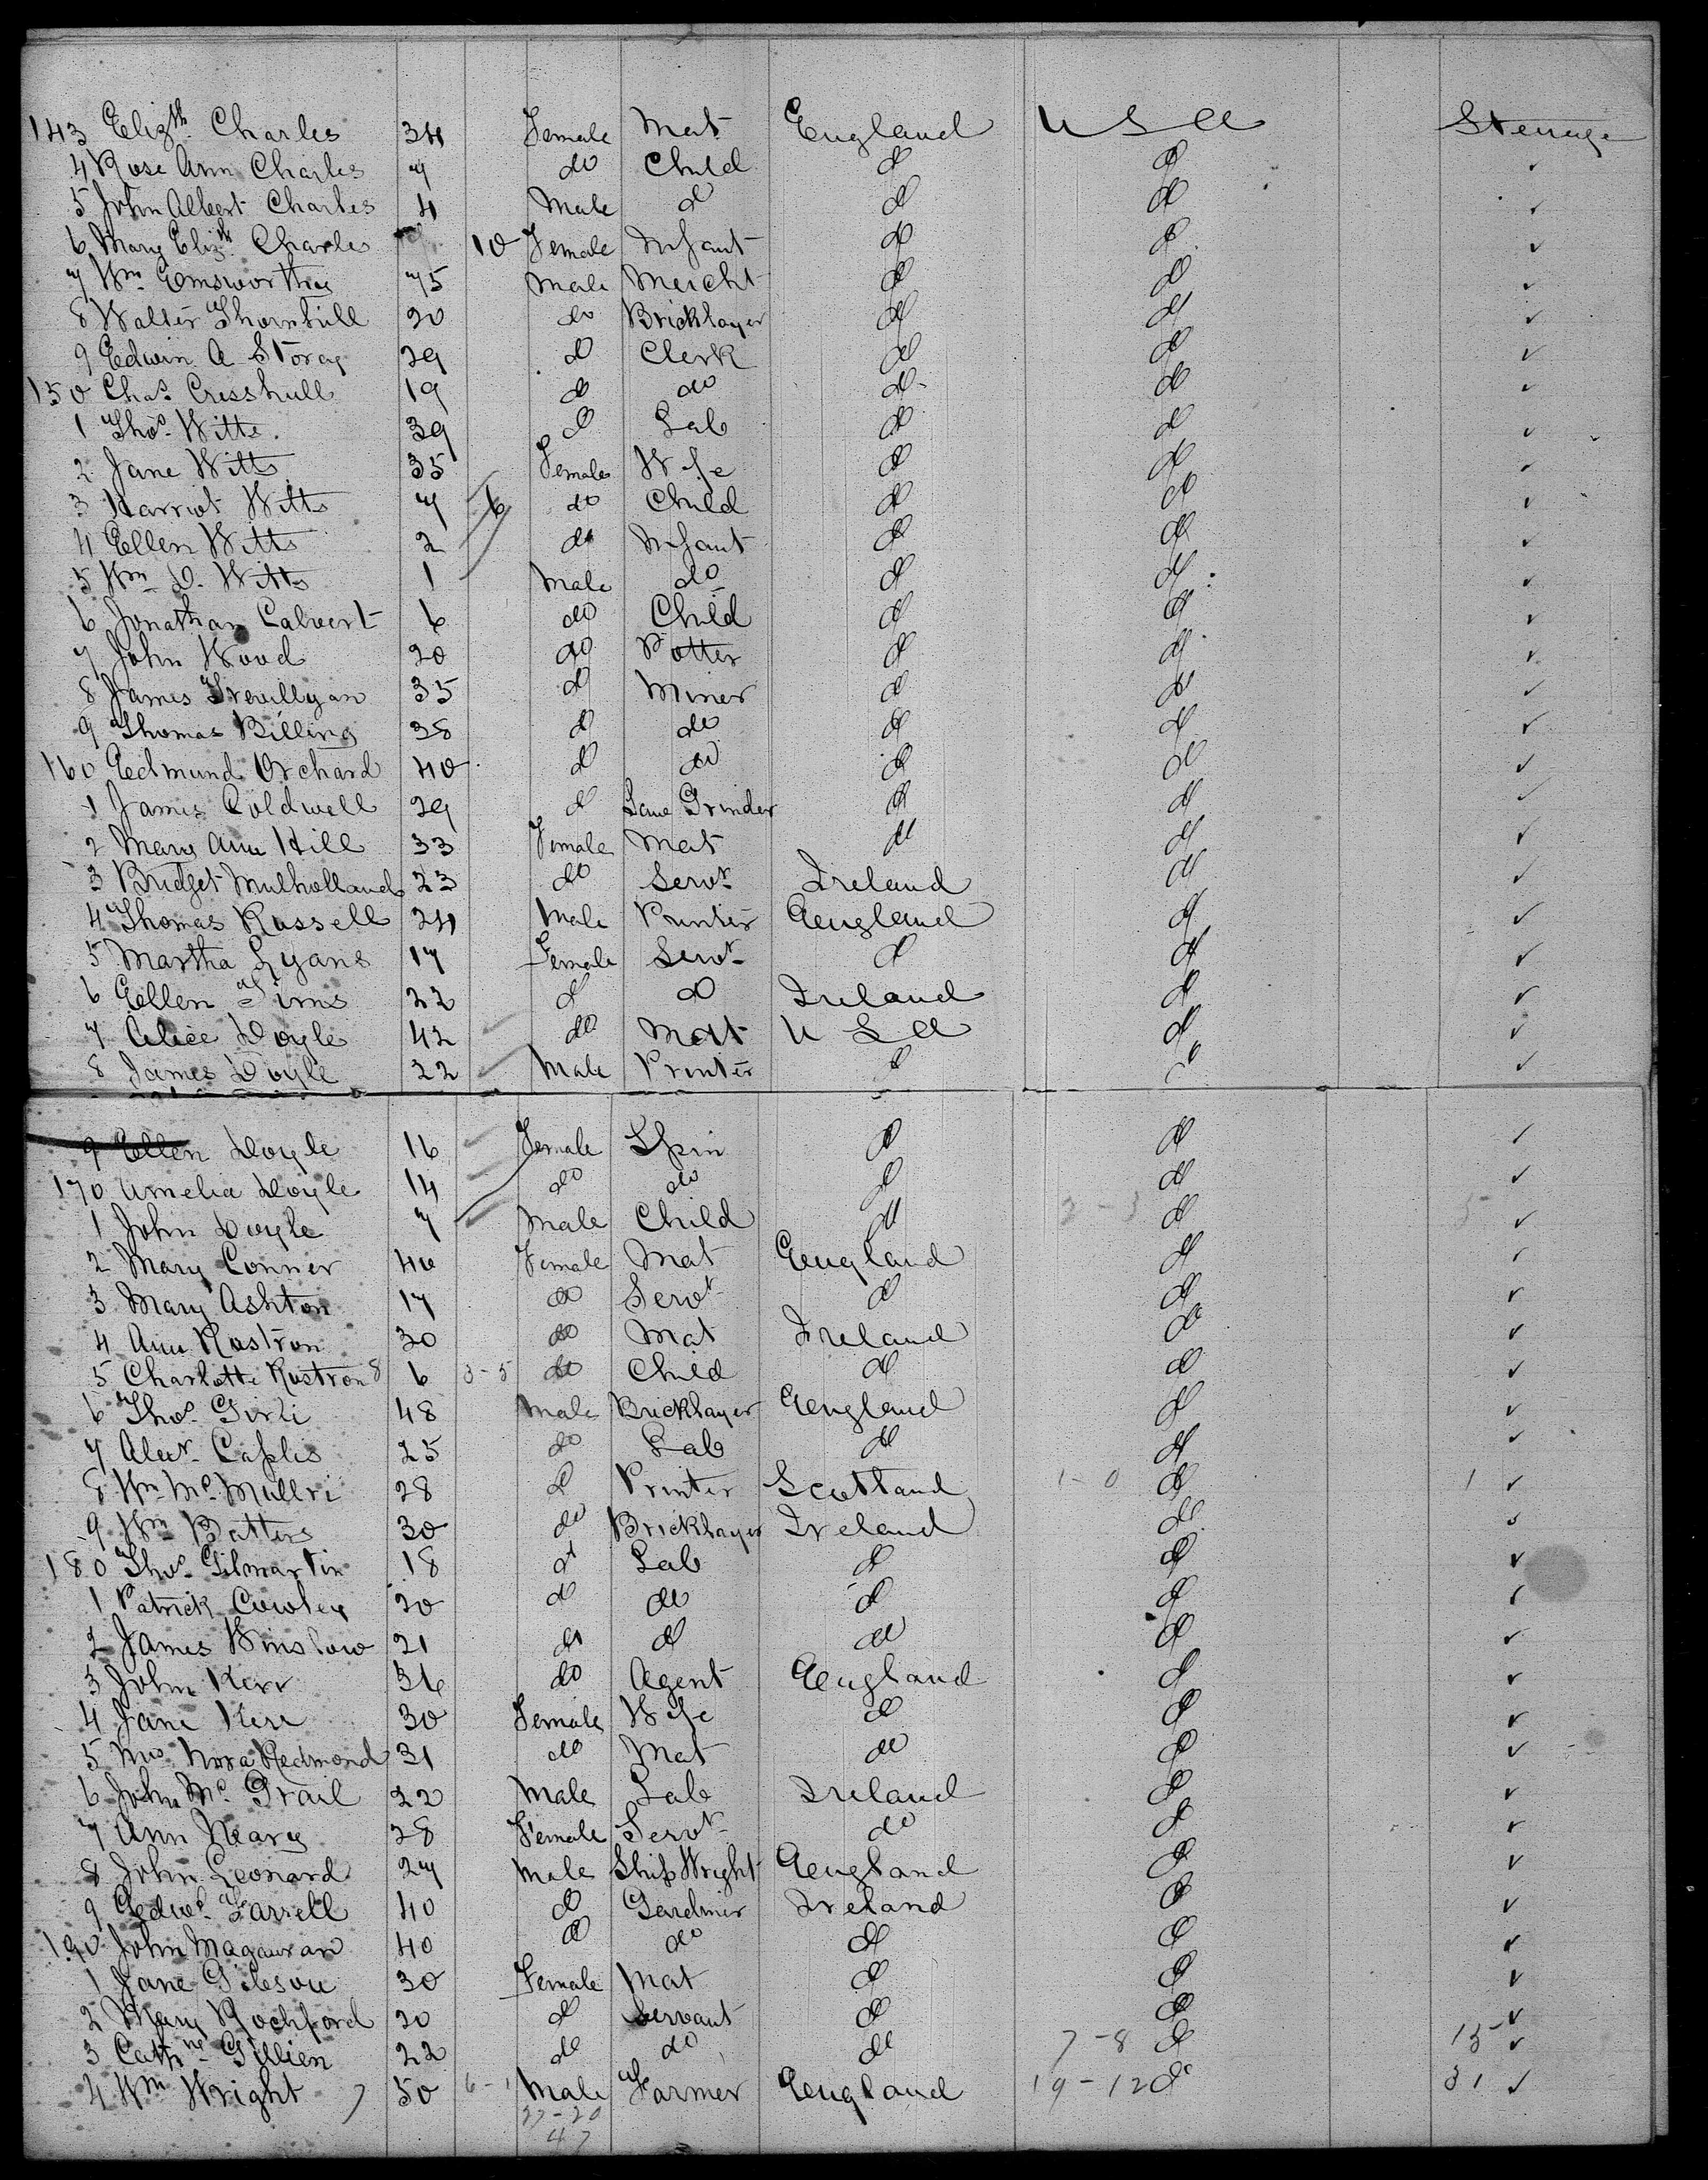 143 Elizth Charles 34 Female Mat England U S A Steerage
4 Rose Ann Charles 7 do Child do do ✓
5 John Albert Charles 4 Male do do do ✓
6 Mary Elizth Charles 10 Female Infant do do ✓
7 Wm Emsworthy 75 Male Mercht do do ✓
8 Walter Thornhill 20 do Bricklayer do do ✓
9 Edwin A Storay 29 do Clerk do do ✓
150 Chas Cresshull 19 do do do do ✓
1 Thos Witts 39 do Lab do do ✓
2 Jane Witts 35 Female Wife do do ✓
3 Harriot Witts 7 6 do Child do do ✓
4 Ellen Witts 2 do Infant do do ✓
5 Wm D. Witts 1 Male do do do ✓
6 Jonathan Calvert 6 do Child do do ✓
7 John Wood 20 do Potter do do ✓
8 James Trevillyan 35 do Miner do do ✓
9 Thomas Billing 38 do do do do ✓
160 Edmund Orchard 40 do do do do ✓
1 James Coldwell 29 do Saw Grinder do do ✓
2 Mary Ann Hill 33 Female Mat do do ✓
3 Bridget Mulholland 23 do Servt Ireland do ✓
4 Thomas Russell 24 Male Printer England do ✓
5 Martha Lyans 17 Female Servt do do ✓
6 Ellen Tims 22 do do Ireland do ✓
7 Alice Doyle 42 do Mat U S A do ✓
8 James Doyle 22 Male Printer do do ✓
9 Ellen Doyle 16 Female Spin do do ✓
170 Amelia Doyle 14 do do do do ✓
1 John Doyle 7 Male Child do 2-3 do 5 ✓
2 Mary Conner 40 Female Mat England do ✓
3 Mary Ashton 17 do Servt do do ✓
4 Ann Rostron 30 do Mat Ireland do ✓
5 Charlotte Rostron 8 6 3-5 do Child do do ✓
6 Thos Girli 48 Male Bricklayer England do ✓
7 Alexr Caples 25 do Lab do do ✓
8 Wm Mc Mullri 28 do Printer Scotland 1-0 do 1 ✓
9 Wm Batters 30 do Bricklayer Ireland do ✓
180 Thos Gilmartin 18 do Lab do do ✓
1 Patrick Cowley 20 do do do do ✓
2 James Winslow 21 do do do do ✓
3 John Kerr 36 do Agent England do ✓
4 Jane Kerr 30 Female Wife do do ✓
5 Mrs Nora Redmond 31 do Mat do do ✓
6 John Mc Grail 22 Male Lab Ireland do ✓
7 Ann Neary 28 Female Servt do do ✓
8 John Leonard 27 Male Ship Wright England do ✓
9 Edwd Farrell 40 do Gardiner Ireland do ✓
190 John Magauran 40 do do do do ✓
1 Jane Gibson 30 Female Mat do do ✓
2 Mary Rochford 20 do Servant do do ✓
3 Cathne Gillien 22 do do do 7-8 do 15 ✓
4 Wm Wright 7 50 6-1 Male Farmer England 19-12 do 31 ✓
27-20
47